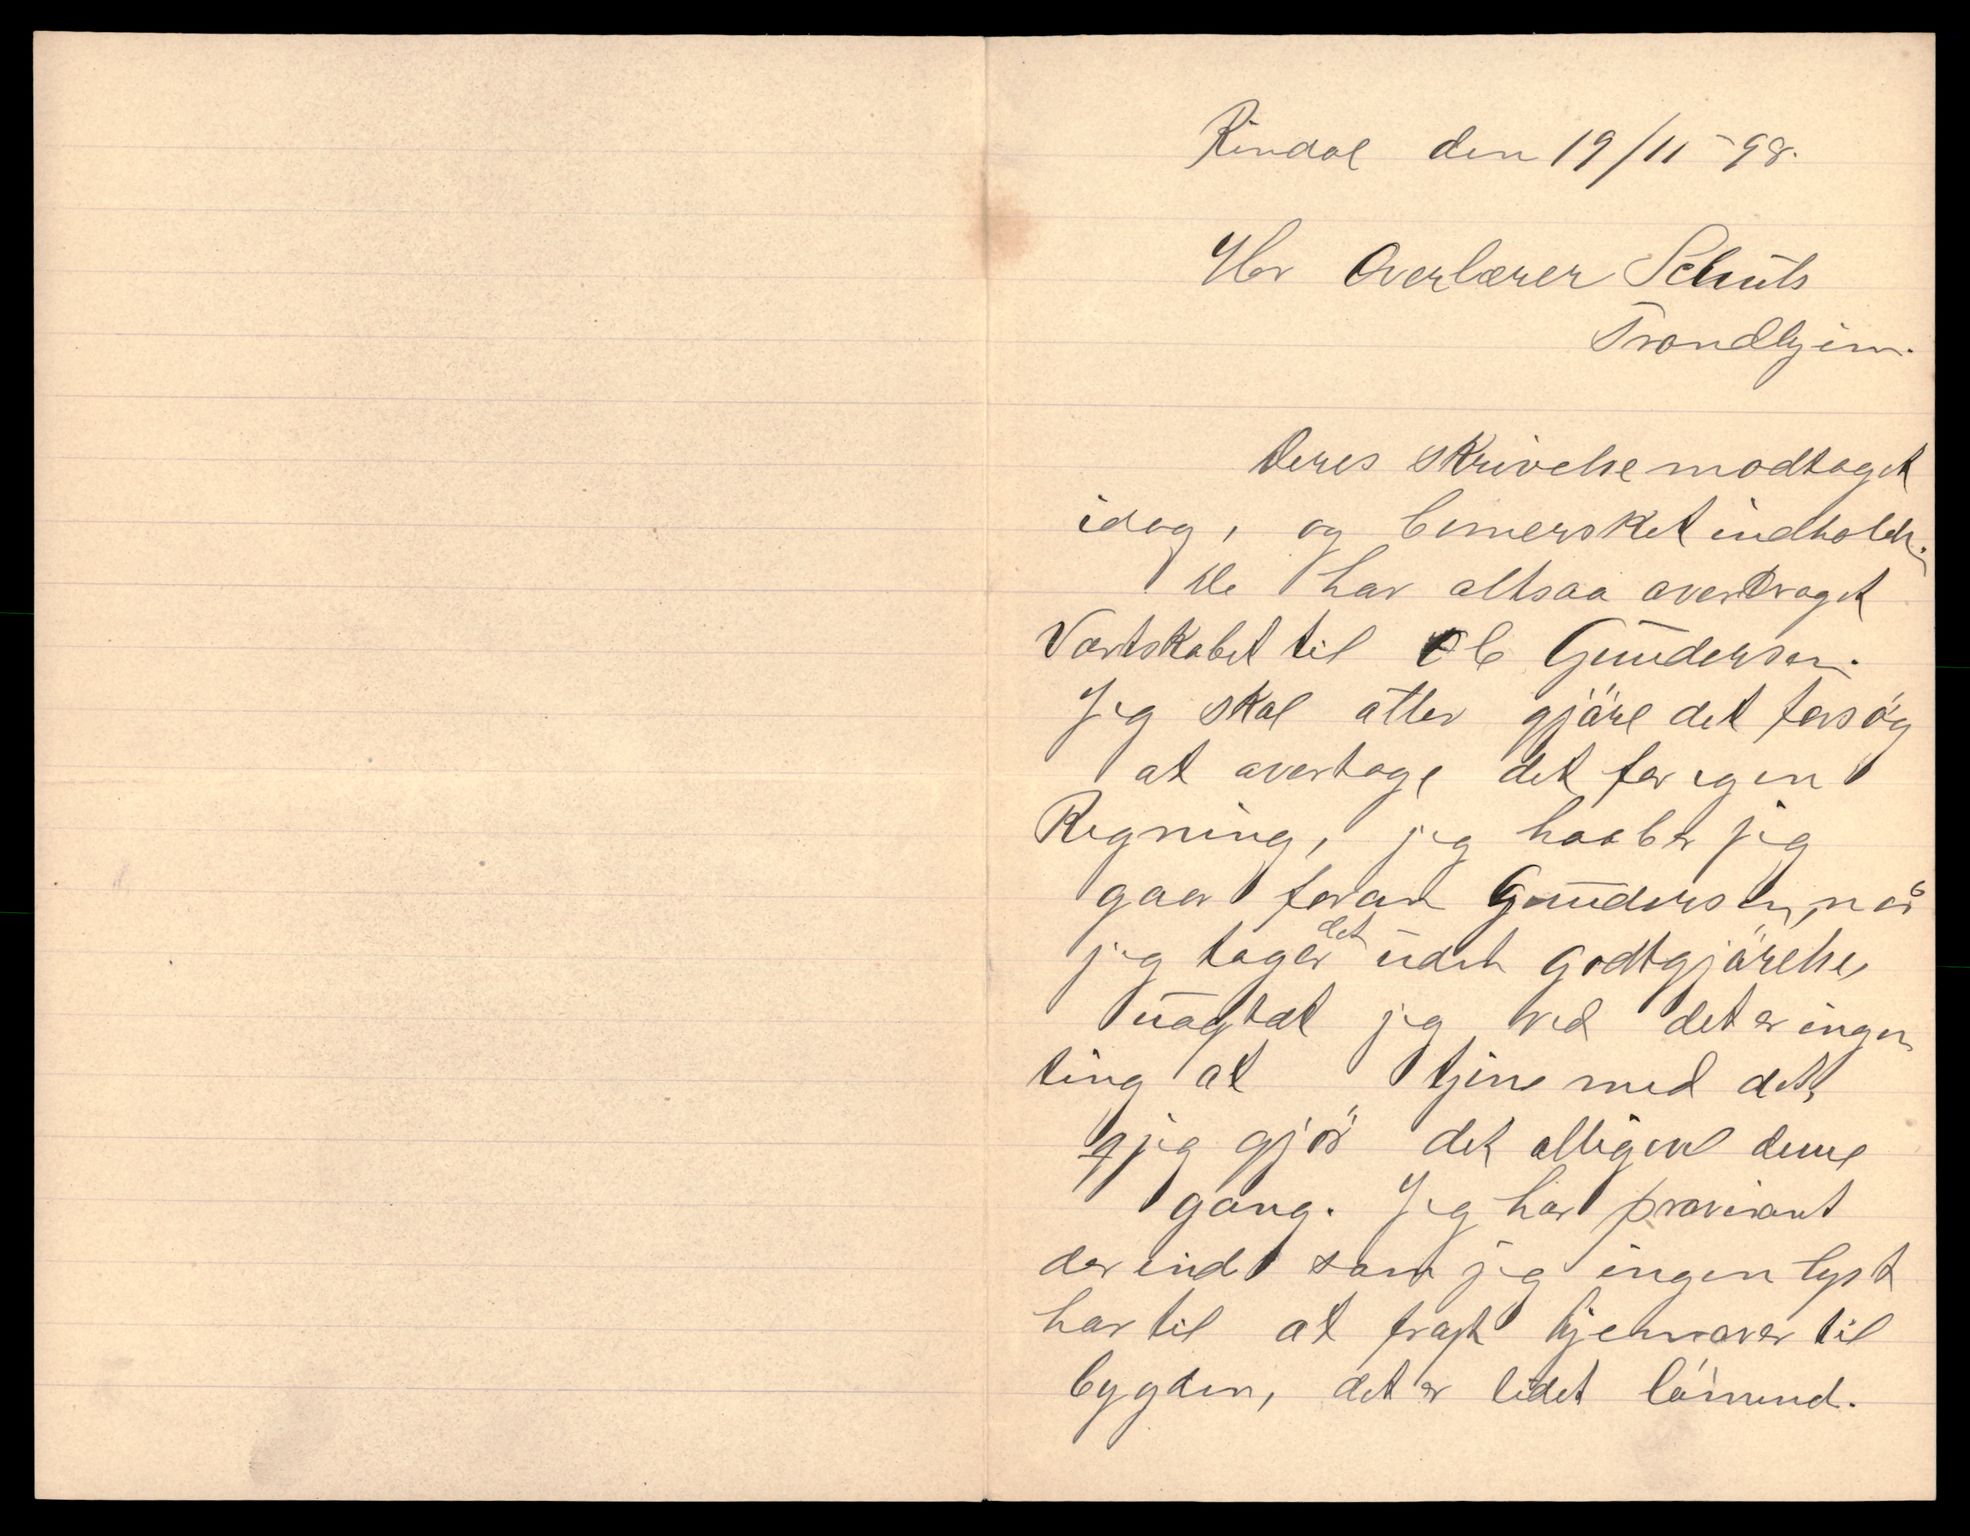 Rindal den 19/11 -98.
Hr Overlærer Schulz
Trondhjem.
Deres skrivelse modtaget
idag, og bemersket indholdt.
De har altsaa overdraget
Vertskabet til Ole Gundersen.
Jeg skal atter gjöre det forsög
at overtage det for egen
Regning, jeg haaber jeg
gaar foran Gundersen, når
jeg tager det uden godtgjörelse,
uagtat jeg ved det er ingen
ting at tjene med det,
jeg gjör det alligevel denne
gang. Jeg har proviant
der inde som jeg ingen lyst
har til at fragte hjemover til
bygden, det er lidet lönnend.